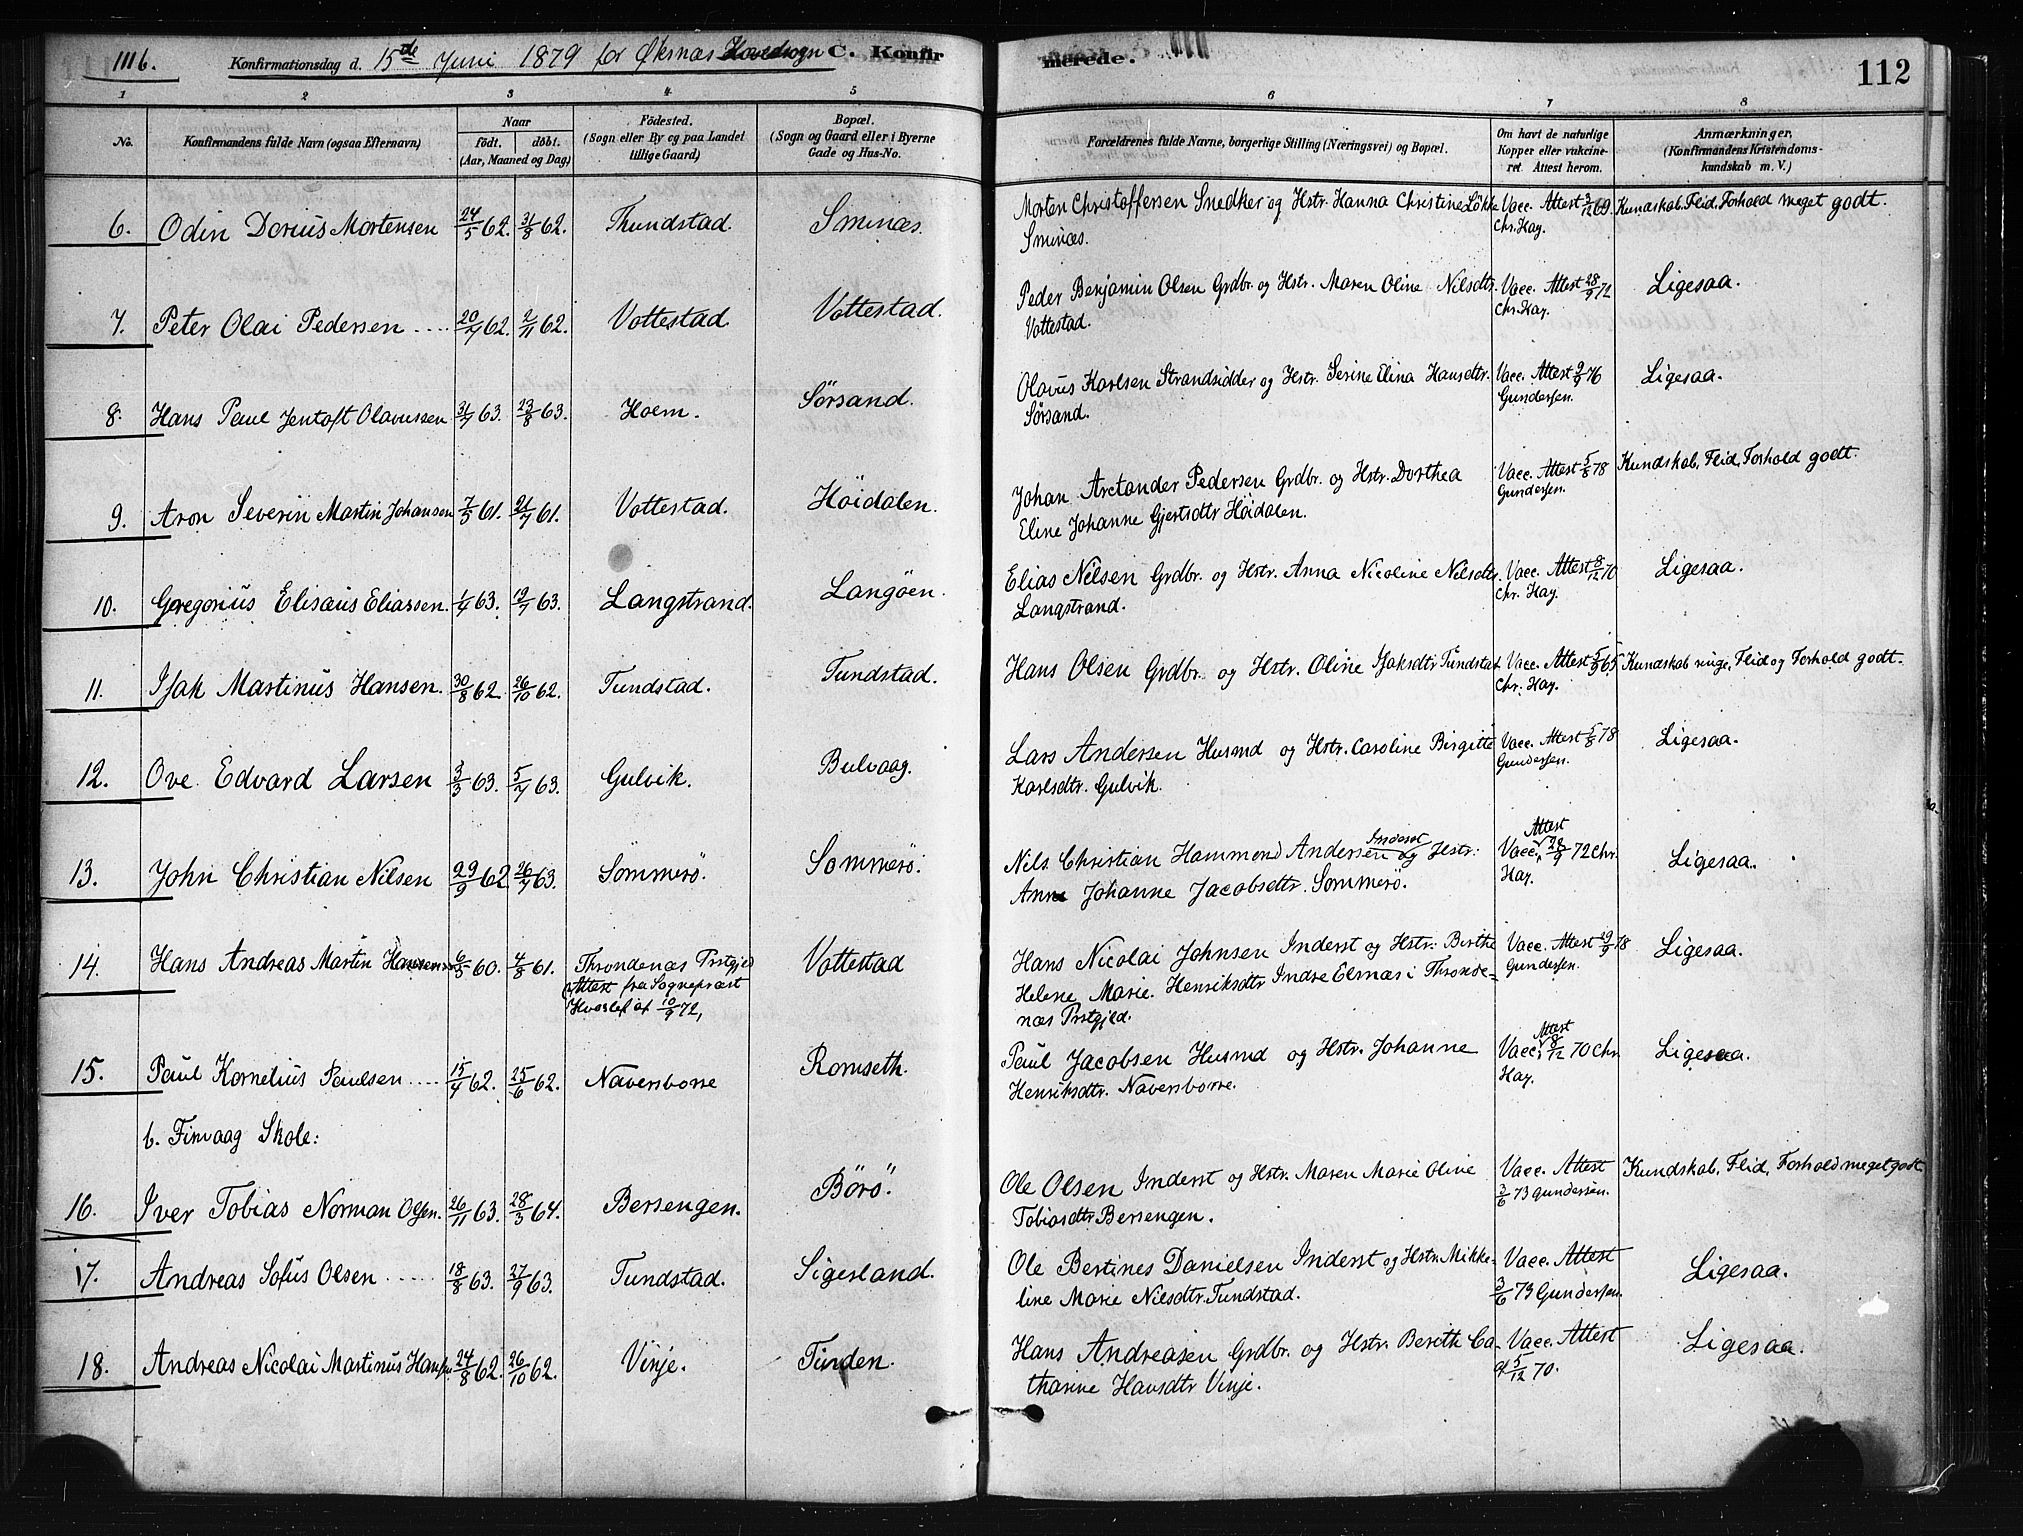 111b. Konfirmationsdag d. 15de Juni 1879 for Øksnæs Hovedsogn C. Konfirmerede. 112
1 2 3 4 5 6 7 8
No. Konfirmandens fulde Navn (ogsaa Efternavn) Naar födt. döbt. (Aar, Maaned og Dag) Födested. (Sogn eller By og paa Landet tillige Gaard) Bopæl. (Sogn og Gaard eller i Byerne Gade og Hus-No. Forældrenes fulde Navne, borgerlige Stilling (Næringsvei) og Bopæl. Om havt de naturlige Kopper eller vakcineret. Attest herom. Anmærkninger. (Konfirmandens Kristendomskundskab m. V.)
6. Odin Dorius Mortensen 24/5 62. 31/8 62. Thundstad. Sminæs. Morten Christoffersen Snedker og Hstr. Hanna Christine Løkke Vacc. Attest 3/12 69. Kundskab, Flid, Forhold meget godt.
Sminæs. Chr. Hay.
7. Peter Olai Pedersen .... 20/7 62. 2/11 62. Vottestad. Vottestad. Peder Benjamin Olsen Grdbr. og Hstr. Maren Oline Nilsdtr. Vacc. Attest 28/9 72 Ligesaa.
Vottestad. Chr. Hay.
8. Hans Paul Jentoft Olavussen 31/7 63. 23/8 63. Hoem. Sørsand. Olavus Karlsen Strandsidder og Hstr. Serine Elina Hansdtr. Vacc. Attest 9/9 76 Ligesaa.
Sørsand. Gundersen.
9. Aron Severin Martin Johansen 7/5 61. 21/7 61. Vottestad. Höidalen. Johan Arctander Pedersen Grdbr. og Hstr. Dorthea Vacc. Attest 5/8 78 Kundskab, Flid, Forhold godt.
Eline Johanne Gjertsdtr Höidalen. Gundersen.
10. Gregorius Elisæus Eliassen. 1/4 63. 19/7 63. Langstrand. Langöen. Elias Nilsen Grdbr. og Hstr. Anna Nicoline Nilsdtr. Vacc. Attest 8/12 70 Ligesaa.
Langstrand. Chr. Hay.
11. Isak Martinus Hansen. 30/8 62. 26/10 62. Tundstad. Tundstad. Hans Olsen Grdbr. og Hstr. Oline Isaksdtr Tundstad Vacc. Attest 5/9 65 Kundskab ringe, Flid og Forhold godt.
Chr. Hay.
12. Ove Edvard Larsen 3/3 63. 5/7 63. Gulvik. Bulvaag. Lars Andersen Husmd og Hstr. Caroline Birgitte Vacc. Attest 5/8 78 Ligesaa.
Karlsdtr. Gulvik. Gundersen.
13. John Christian Nilsen 29/9 62 26/7 63. Sömmerö. Sommerö. Nils Christian Hammond Andersen Inderst og Hstr: Vacc. Attest 28/9 72 Chr. Ligesaa.
Anne Johanne Jacobsdtr. Sommerö. Hay.
14. Hans Andreas Martin Hansen 6/5 60. 4/8 61. Throndenæs Prstgjeld Vottestad Hans Nicolai Johnsen Inderst og Hstr: Berthe Vacc. Attest 29/9 78 Ligesaa.
(Attest fra Sogneprest Helene Marie Henriksdtr Indre Elsnæs i Thronde- Gundersen.
Hvoslef af 10/9 72, næs Prstgjeld.
15. Paul Kornelius Paulsen .... 15/4 62. 25/6 62. Naversborre Romseth. Paul Jacobsen Husmd og Hstr. Johanne Vacc. Attest 8/12 70 Chr. Ligesaa.
Henriksdtr. Naversborre. Hay.
b. Finvaag Skole:
16. Iver Tobias Norman Olsen. 26/11 63. 28/3 64. Bersengen. Börö. Ole Olsen Inderst og Hstr. Maren Marie Oline Vacc. Attest Kundskab, Flid, Forhold meget godt.
Tobiasdtr Bersengen. 3/6 73 Gundersen.
17. Andreas Sofus Olsen ..... 18/8 63. 27/9 63. Tundstad. Sigerland. Ole Bertines Danielsen Inderst og Hstr. Mikke- Vacc. Attest Ligesaa.
line Marie Nilsdtr. Tundstad. 3/6 73 Gundersen.
18. Andreas Nicolai Martinus Hansen 24/8 62. 26/10 62. Vinje. Tinden. Hans Andreasen Grdbr. og Hstr. Bereth Ca- Vacc. Attest Ligesaa.
tharine Hansdtr Vinje. af 5/12 70.